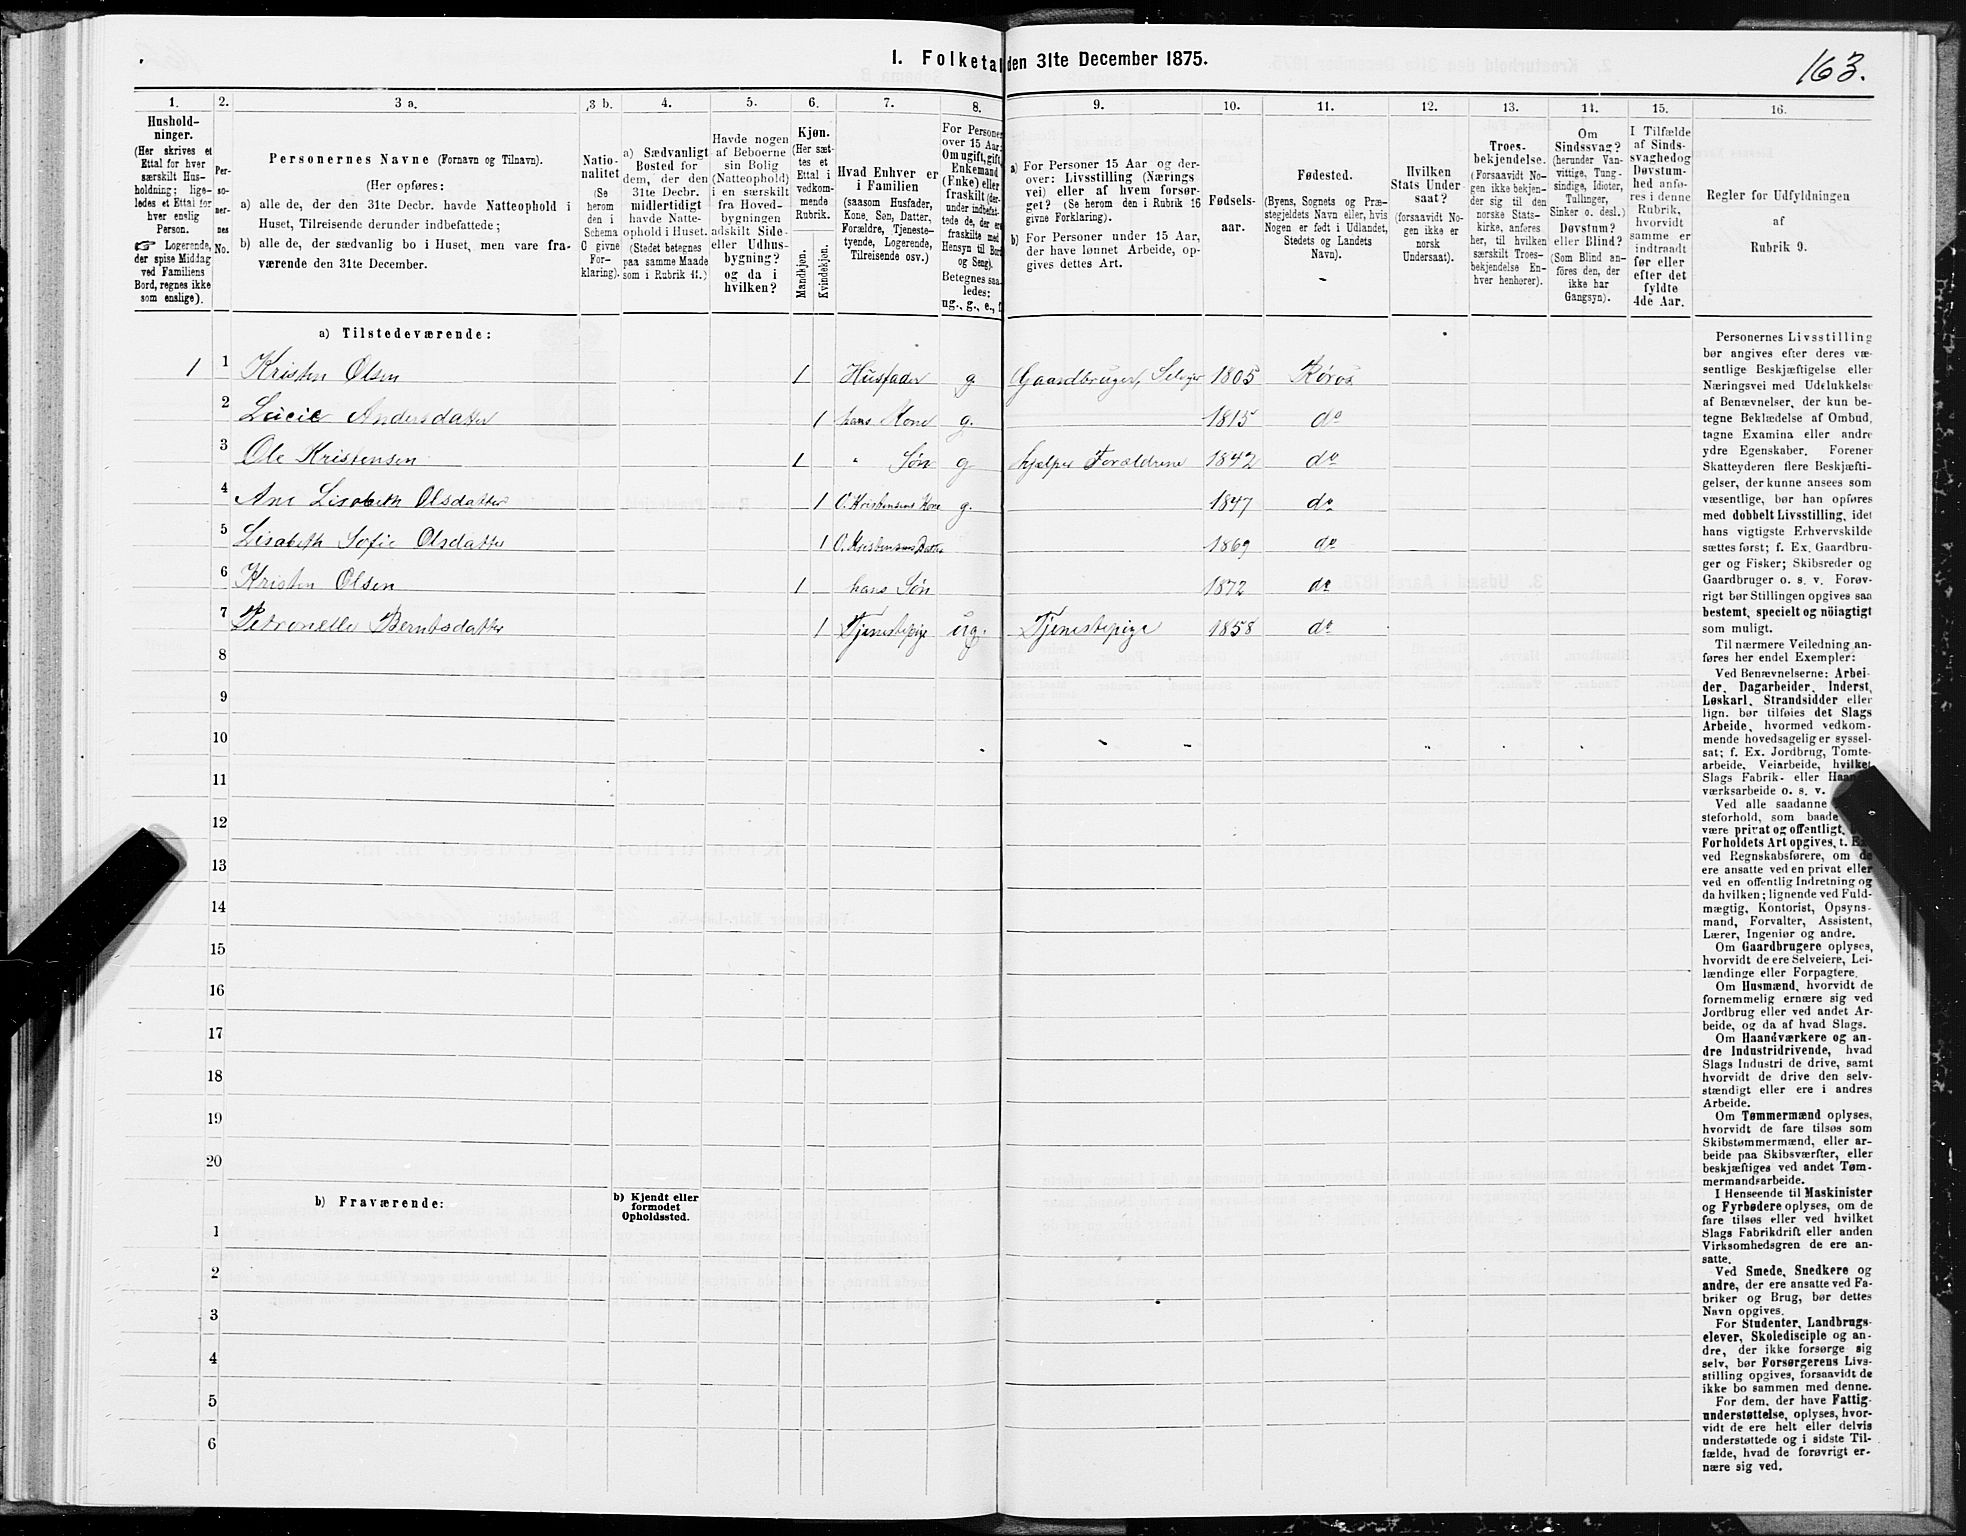 I. Folketal den 31te December 1875.
163.
1.
Hushold-
ninger.
(Her skrives et
Ettal for hver
særskilt Hus-
holdning; lige-
ledes et Ettal for
hver enslig
Person.
☞ Logerende,
der spise Middag
ved Familiens
Bord, regnes ikke
som enslige).
2.
Per-
so-
ner-
nes
No.
3 a.
Personernes Navne (Fornavn og Tilnavn).
(Her opføres:
a) alle de, der den 31te Decbr. havde Natteophold i
Huset, Tilreisende derunder indbefattede;
b) alle de, der sædvanlig bo i Huset, men vare fra-
værende den 31te December.
3 b.
Natio-
nalitet
(Se
herom
den i
Schema
C givne
For-
klaring).
4.
a) Sædvanligt
Bosted for
dem, der den
31te Decbr.
midlertidigt
havde Natte-
ophold i Huset.
(Stedet betegnes
paa samme Maade
som i Rubrik 11.)
5.
Havde nogen
af Beboerne
sin Bolig
(Natteophold)
i en særskilt
fra Hoved-
bygningen
adskilt Side-
eller Udhus-
bygning?
og da i
hvilken?
6.
Kjøn.
(Her sæt-
tes et
Ettal i
vedkom-
mende
Rubrik.
Mandkjøn.
Kvindekjøn.
7.
Hvad Enhver er
i Familien
(saasom Husfader,
Kone, Søn, Datter,
Forældre, Tjeneste-
tyende, Logerende,
Tilreisende osv.)
8.
For Personer
over 15 Aar:
Om ugift, gift,
Enkemand
(Enke) eller
fraskilt (der-
under indbefat-
tede de, der ere
fraskilte med
Hensyn til Bord
og Seng).
Betegnes saa-
ledes:
ug., g., e., f.
9.
a) For Personer 15 Aar og der-
over: Livsstilling (Nærings
vei) eller af hvem forsør-
get? (Se herom den i Rubrik 16
givne Forklaring).
b) For Personer under 15 Aar,
der have lønnet Arbeide, op-
gives dettes Art.
10.
Fødsels-
aar.
11.
Fødested.
(Byens, Sognets og Præ-
stegjeldets Navn eller, hvis
Nogen er født i Udlandet,
Stedets og Landets
Navn).
12.
Hvilken
Stats Under
saat?
(forsaavidt No-
gen ikke er
norsk
Undersaat).
13.
Troes-
bekjendelse.
(Forsaavidt No-
gen ikke bekjen-
der sig til den
norske Stats-
kirke, anføres
her, til hvilken
særskilt Troes-
bekjendelse En-
hver henhører).
14.
Om
Sindssvag?
(herunder Van-
vittige, Tung-
sindige, Idioter,
Tullinger,
Sinker o. desl.)
Døvstum?
eller Blind?
(Som Blind an-
føres den, der
ikke har
Gangsyn).
15.
I Tilfælde
af Sinds-
svaghed og
Døvstum-
hed anfø-
res i denne
Rubrik,
hvorvidt
samme er
indtraadt
før eller
efter det
fyldte
4de Aar.
16.
Regler for Udfyldningen
af
Rubrik 9.
a) Tilstedeværende:
1 1 Kristen Olsen 1 Husfader g. Gaardbruger, Selveier 1805 Røros
2 Lucie Andersdatter 1 hans Kone g. 1815 do
3 Ole Kristensen 1 " Søn g hjælper Forældrene 1842 do
4 Ane Lisabeth Olsdatter 1 O. Kristensens Kone g. 1847 do
5 Lisabeth Sofie Olsdatter 1 O. Kristensens Datter 1869 do
6 Kristen Olsen 1 hans Søn 1872 do
7 Petronelle Berntsdatter 1 Tjenestepige ug. Tjenestepige 1858 do
8
9
10
11
12
13
14
15
16
17
18
19
20
b) Fraværende:
b) Kjendt eller
formodet
Opholdssted.
1
2
3
4
5
6
Personernes Livsstilling
bør angives efter deres væ-
sentlige Beskjæftigelse eller
Næringsvei med Udelukkelse
af Benævnelser, der kun be-
tegne Beklædelse af Ombud,
tagne Examina eller andre
ydre Egenskaber. Forener
Skatteyderen flere Beskjæfti-
gelser, der kunne ansees som
væsentlige, bør han opføres
med dobbelt Livsstilling, idet
hans vigtigste Erhvervskilde
sættes først; f. Ex. Gaardbru-
ger og Fisker; Skibsreder og
Gaardbruger o. s. v. Forøv-
rigt bør Stillingen opgives saa
bestemt, specielt og nöiagtigt
som muligt.
Til nærmere Veiledning an-
føres her endel Exempler:
Ved Benævnelserne: Arbei-
der, Dagarbeider, Inderst,
Løskarl, Strandsidder eller
lign. bør tilføies det Slags
Arbeide, hvormed vedkom-
mende hovedsagelig er syssel-
sat; f. Ex. Jordbrug, Tomte-
arbeide, Veiarbeide, hvilket
Slags Fabrik- eller Haand-
værksarbeide o. s. v.
Ved alle saadanne
steforhold, som baade
være privat og offentligt,
Forholdets Art opgives, t. Ex.
ved Regnskabsførere, om de
ere ansatte ved en privat eller
ved en offentlig Indretning og
da hvilken; lignende ved Fuld-
mægtig, Kontorist, Opsyns-
mand, Forvalter, Assistent,
Lærer, Ingeniør og andre.
Om Gaardbrugere oplyses,
hvorvidt de ere Selveiere, Lei-
lændinge eller Forpagtere.
Om Husmænd, hvorvidt de
fornemmelig ernære sig ved
Jordbrug eller ved andet Ar-
beide, og da af hvad Slags.
Om Haandværkere og an-
dre Industridrivende, hvad
Slags Industri de drive, samt
hvorvidt de drive den selv-
stændigt eller ere i andres
Arbeide.
Om Tømmermænd oplyses,
hvorvidt de fare tilsøs som
Skibstømmermænd, eller ar-
beide paa Skibsværfter, eller
beskjæftiges ved andet Tøm-
mermandsarbeide.
I Henseende til Maskinister
og Fyrbødere oplyses, om de
fare tilsøs eller ved hvilket
Slags Fabrikdrift eller anden
Virksomhedsgren de ere an-
satte.
Ved Smede, Snedkere og
andre, der ere ansatte ved Fa-
briker og Brug, bør dettes
Navn opgives.
For Studenter, Landbrugs-
elever, Skoledisciple og an-
dre, der ikke forsørge sig
selv, bør Forsørgerens Livs-
stilling opgives, forsaavidt de
ikke bo sammen med denne.
For dem, der have Fattig-
understøttelse, oplyses, hvor-
vidt de ere helt eller delvis
understøttede og i sidste Til-
fælde, hvad de forøvrigt er-
nære sig ved.